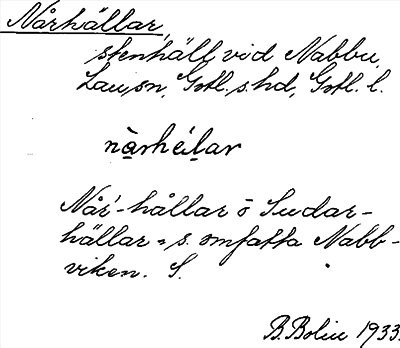 Nårhällar,
stenhäll vid Nabbu,
Lau sn, Gotl. s. hd, Gotl. l.
nàrhélar
Når-hållar ō Sudar-
hällar, s. omfatta Nabb-
viken. S.
B. Bolin 1933.